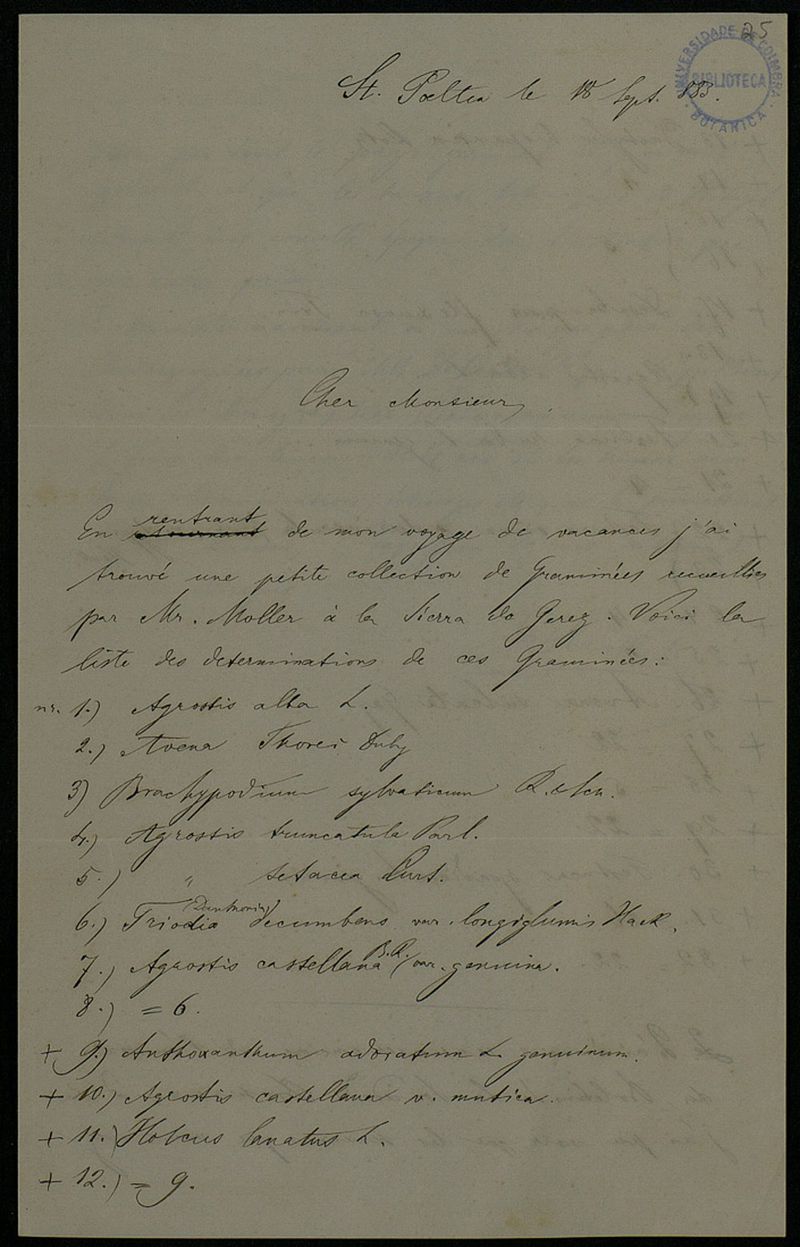 25
UNIVERSIDADE DE COIMBRA
BIBLIOTECA
BOTANICA
St. Poelten le 18 Sept. 883.
Cher Monsieur,
rentrant
En de mon voyage de vacances j'ai
trouvé une petite collection de Graminées recueillies
par Mr. Moller à la Sierra do Gerez. Voici la
liste des determinations de ces Graminées:
nr. 1.) Agrostis alba L.
2.) Avena Thorei Duby
3) Brachypodium sylvaticum R. &
4.) Agrostis truncatula Parl.
5.) " setacea Curt.
(Danthonia)
6.) Triodia decumbens var. longiglumis Hack.
B.R.
7.) Agrostis castellana var. genuina.
8.) = 6.
+ 9.) Anthoxanthum odoratum L. genuinum.
+ 10.) Agrostis castellana v. mutica.
+ 11.) Holcus lanatus L.
+ 12.) = 9.